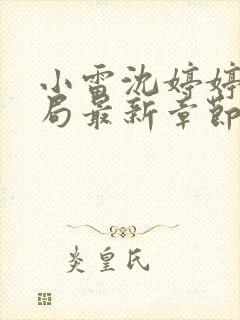 小雷沈婷婷
局最新章节
炎皇氏